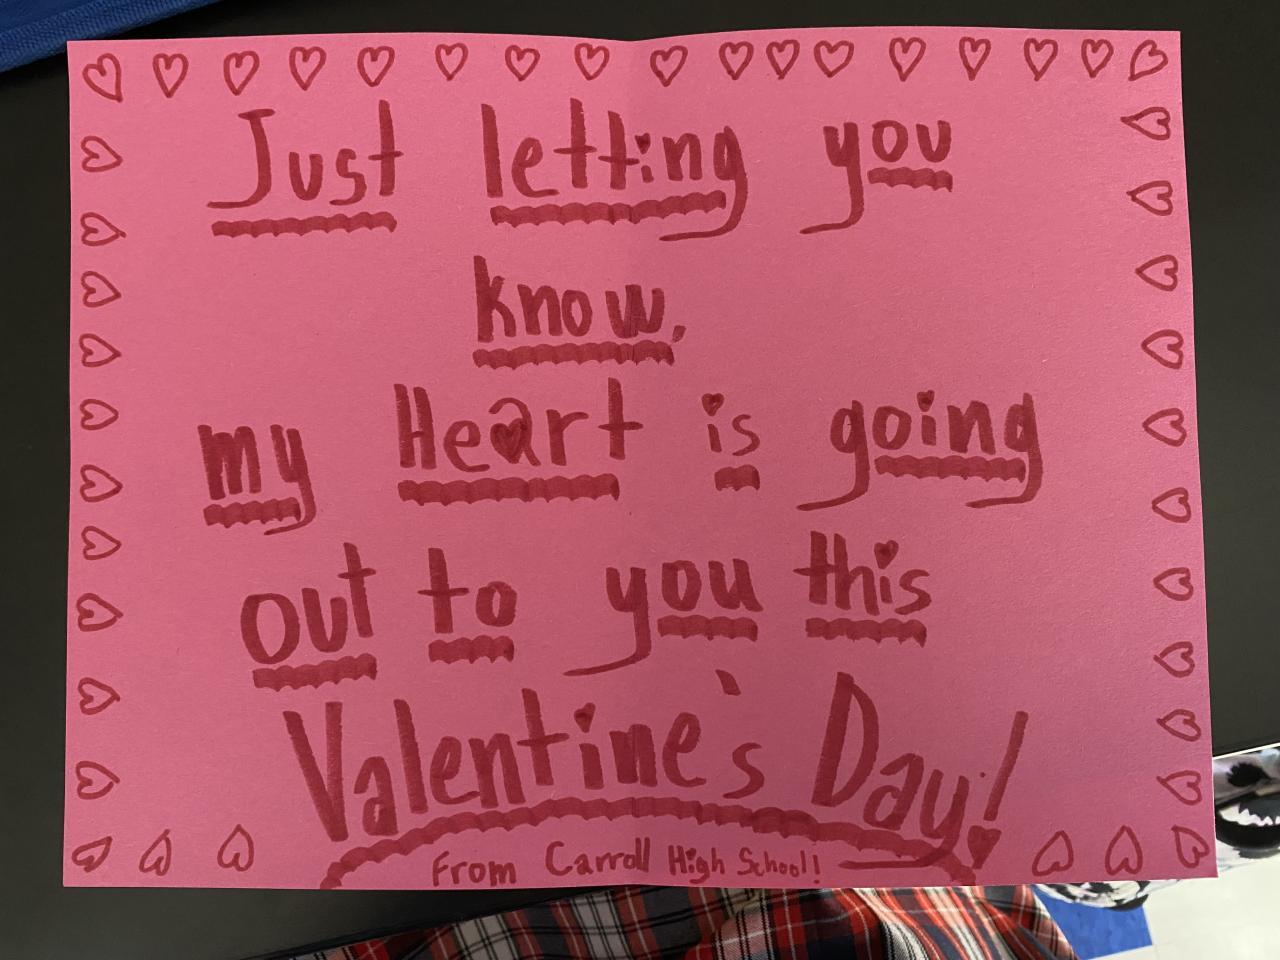 Just letting you
know,
my Heart is going
out to you this
Valentine's Day!
From Carroll High School!